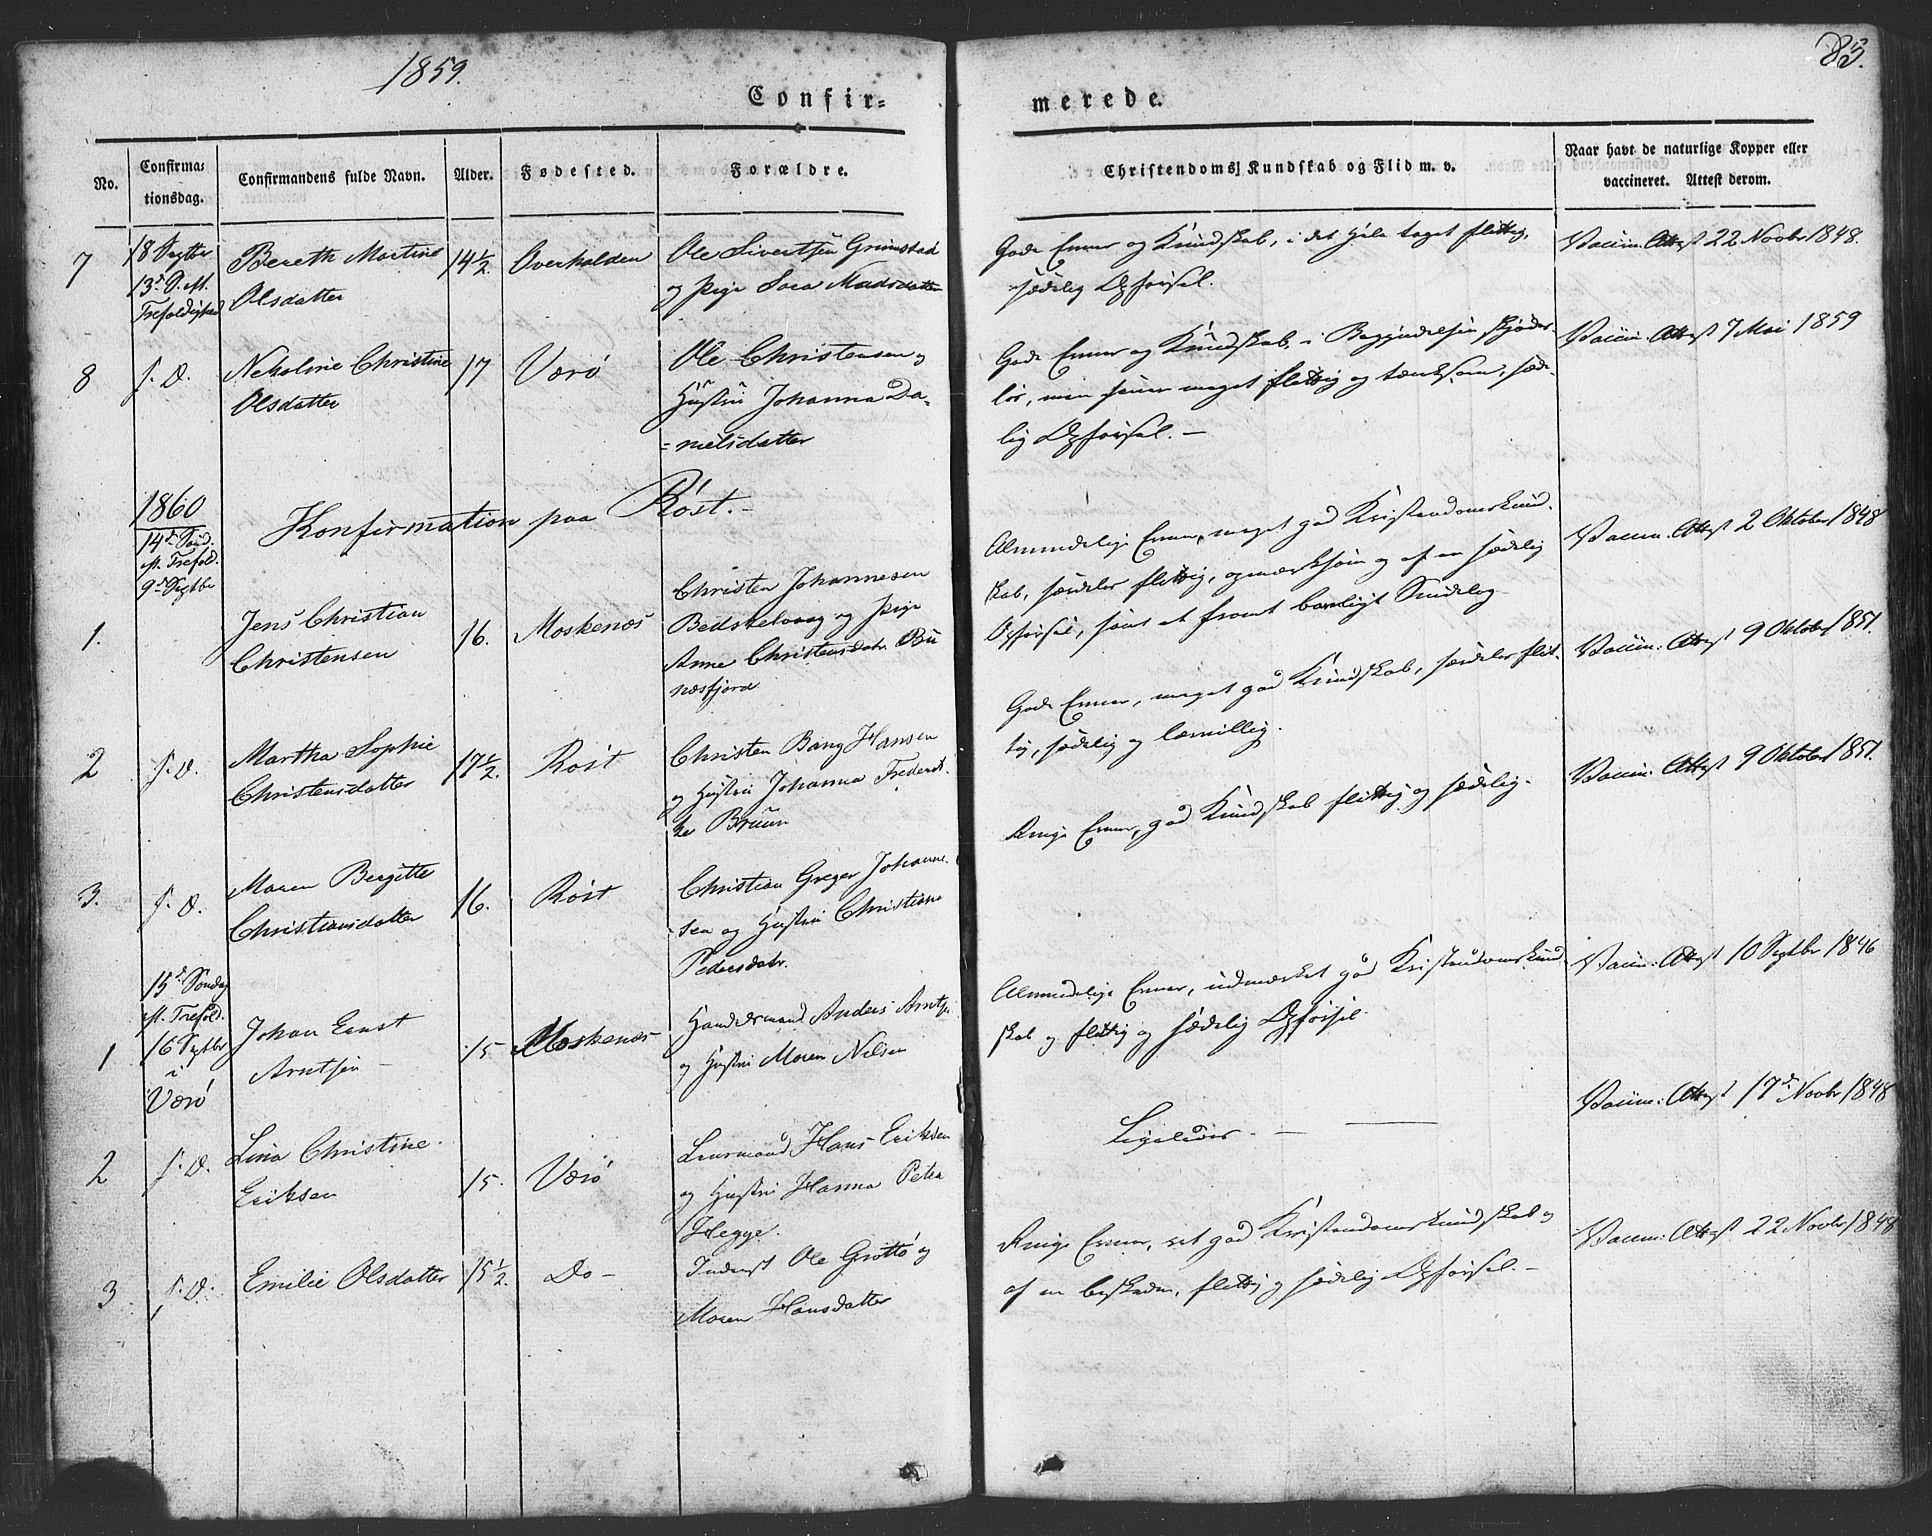 1859.
83.
Confir-
merede.
No.
Confirma-
tionsdag.
Confirmandens fulde Navn.
Alder.
Fødested.
Forældre.
Christendoms Kundskab og Flid m. v.
Naar havt de naturlige Kopper eller
vaccineret. Attest derom.
7
18 Septbr
13d S. e. T.
Trefoldighed
Bereth Martine
Olsdatter
14½
Overhalden
Ole Sivertsen Grimstad
og Pige Sara Madsdatter
Gode Evner og Kundskab, i det Hele taget flittig,
sædelig Opførsel.
Vaccin. Attest 22 Novbr 1848.
8
s. D.
Nekoline Christine
Olsdatter
17
Værö
Ole Christensen og
Hustru Johanna Da-
=nielsdatter
Gode Evner og Kundskab, i Begyndelsen skjødes-
løs, men senere meget flittig og tænksom, sæde-
lig Opførsel. -
Vaccin. Attest 7 Mai 1859
1860
14d Sønd.
eft. Trefold.
9d Septbr
Konfirmation paa Röst. -
1.
Jens Christian
Christensen
16.
Moskenæs
Christen Johannesen
Bedskelvaag og Pige
Anne Christensdatr Bu
næsfjord
Almindelige Evner, meget god Kristendomskund-
skab, særdeles flittig, opmærksom og af en sædelig
Opførsel, samt et fromt barnligt Sindelag
Vaccin. Attest 2 Oktober 1848
2
s. D.
Martha Sophie
Christensdatter
17½.
Röst
Christen Bang Hansen
og Hustru Johanna Frederik-
ke Bruun
Gode Evner, meget god Kundskab, særdeles flit-
tig, sædelig og lærvillig.
Vaccin. Attest 9 Oktober 1851.
3.
s. D.
Maren Bergitte
Christiansdatter
16.
Röst
Christian Greger Johanne-
sen og Hustru Christiane
Pedersdatr.
Ringe Evner, god Kundskab flittig og sædelig.
Vaccin. Attest 9 Oktober 1851.
1
15d Søndag
eft. Trefold.
16 Septbr
i
Værö
Johan Ernst
Arntsen -
15
Moskenæs
Handelsmand Anders Arntsen
og Hustru Maren Nilsen
Almindelige Evner, udmærket god Kristendomskund-
skab og flittig og sædelig Opførsel.
Vaccin. Attest 10 Septbr 1846
2
s. D.
Lina Christine
Eriksen
15.
Værö
Lensmand Hans Eriksen
og Hustru Hanna Petra
Hegge.
Ligeledes. -
Vaccin. Attest 17d Novbr 1848
3
s. D.
Emilie Olsdatter
15½.
Do -
Inderst Ole Grottö og
Maren Hansdatter
Ringe Evner, ret god Kristendomskundskab og
af en beskeden, flittig og sædelig Opførsel. -
Vaccin. Attest 22 Novbr 1848